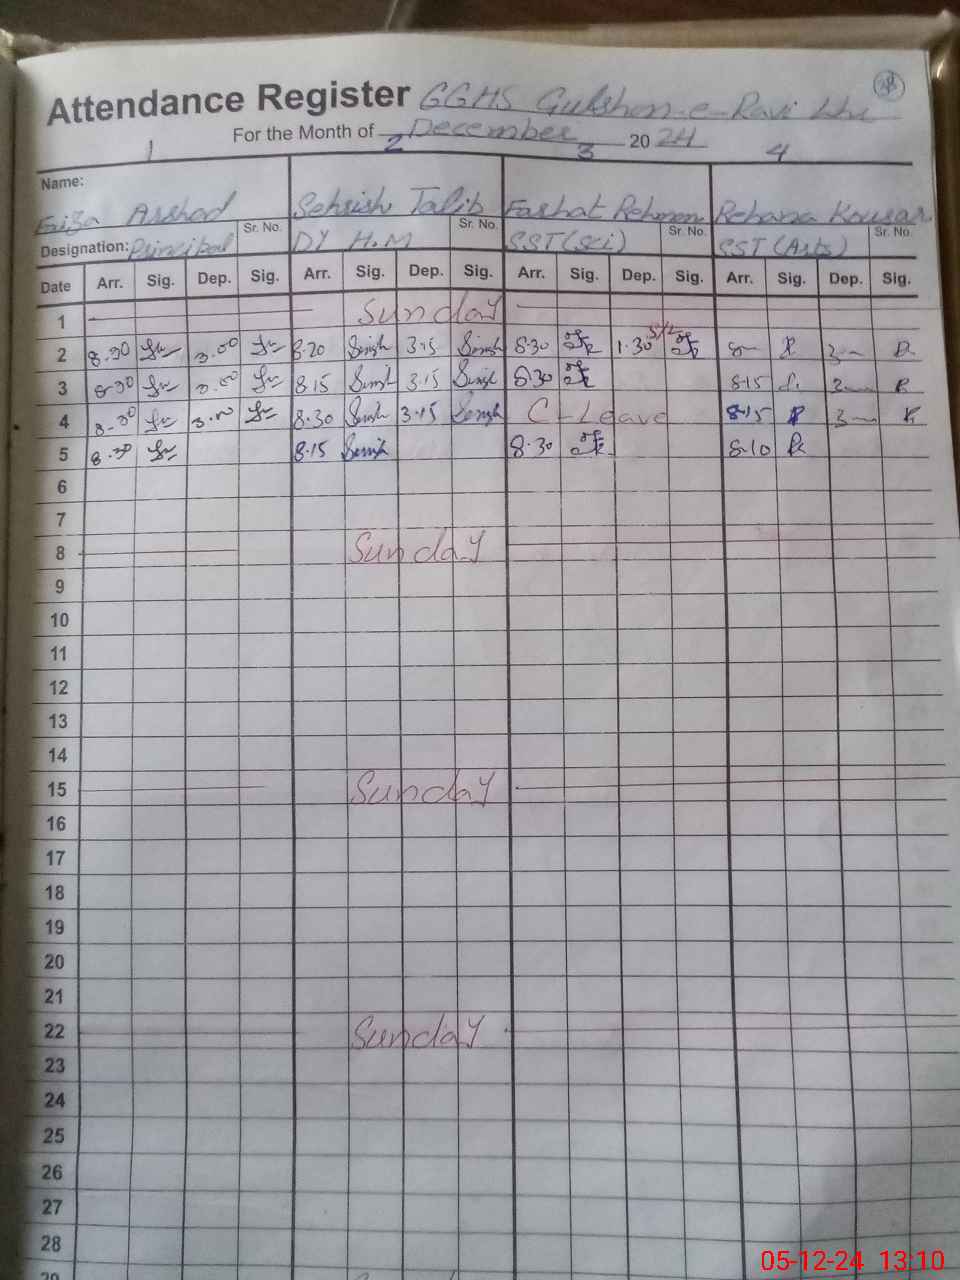 38
Attendance Register GGHS Gulshan-e-Ravi Lhr
For the Month of December 2024
1 2 3 4
Name:
Faiza Arshad Sehrish Talib Farhat Rehman Rehana Kousar
Designation: Principal Sr. No. DY H.M Sr. No. SST (Sci) Sr. No. SST (Arts) Sr. No.
Date Arr. Sig. Dep. Sig. Arr. Sig. Dep. Sig. Arr. Sig. Dep. Sig. Arr. Sig. Dep. Sig.
1 Sunday
2 8.30 3.00 8.20 3.15 8.30 1.30 S/L 8 R 3 R
3 8.30 3.00 8.15 3.15 8.30 8.15 3 R
4 8.30 3.00 8.30 3.15 C-Leave 8.15 R 3 R
5 8.30 8.15 8.30 8.10 R
6
7
8 Sunday
9
10
11
12
13
14
15 Sunday
16
17
18
19
20
21
22 Sunday
23
24
25
26
27
28
29
05-12-24 13:10